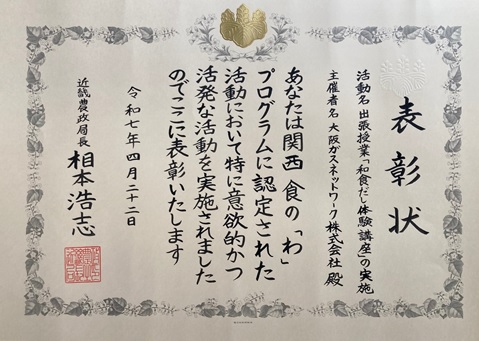 表彰状
活動名 出張授業「和食だし体験講座」の実施
主催者名 大阪ガスネットワーク株式会社 殿
あなたは関西 食の「わ」
プログラムに認定された
活動において特に意欲的かつ
活発な活動を実施されました
のでここに表彰いたします
令和七年四月二十二日
近畿農政局長 相本浩志